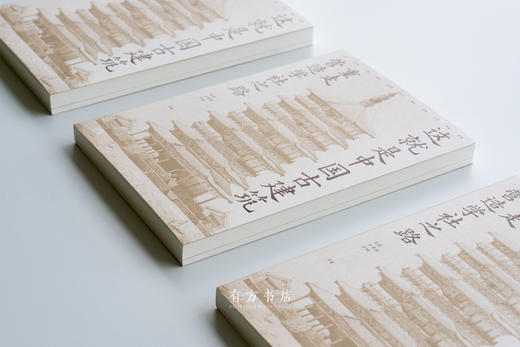 这就是中国古建筑
重走
营造学社之路
这就是中国古建筑
重走
营造学社之路
走
营造学社之路
有方书店